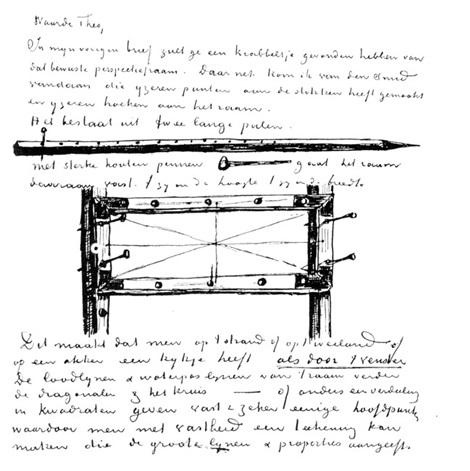 Waarde Theo,
In mijn vorigen brief zult ge een krabbeltje gevonden hebben van
dat bewuste perspectiefraam. Daar net kom ik van den smid
vandaan die yzeren punten aan de stokken heeft gemaakt
en yzeren hoeken aan het raam.
Het bestaat uit twee lange palen.
met sterke houten pennen gaat het raam
daaraan vast. 't zy in de hoogte 't zy in de breedte
Dit maakt dat men op 't strand of op 't weiland of
op een akker een kykje heeft als door 't venster
De loodlynen & waterpaslynen van 't raam verder
de diagonalen & het kruis — of anders een verdeeling
in kwadraten geven vast & zeker eenige hoofdpunten
waardoor men met vastheid een teekening kan
maken die de groote lynen & proporties aangeeft.